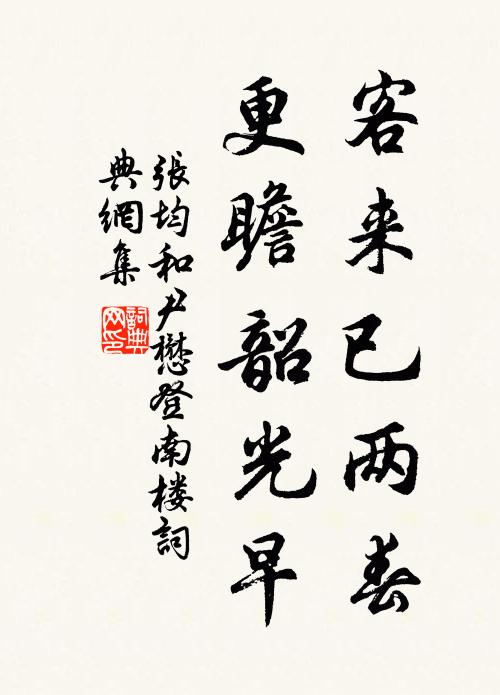 客来已两春
更瞻韶光早
張均和尹懋登南楼詞
典網集
詞典网印